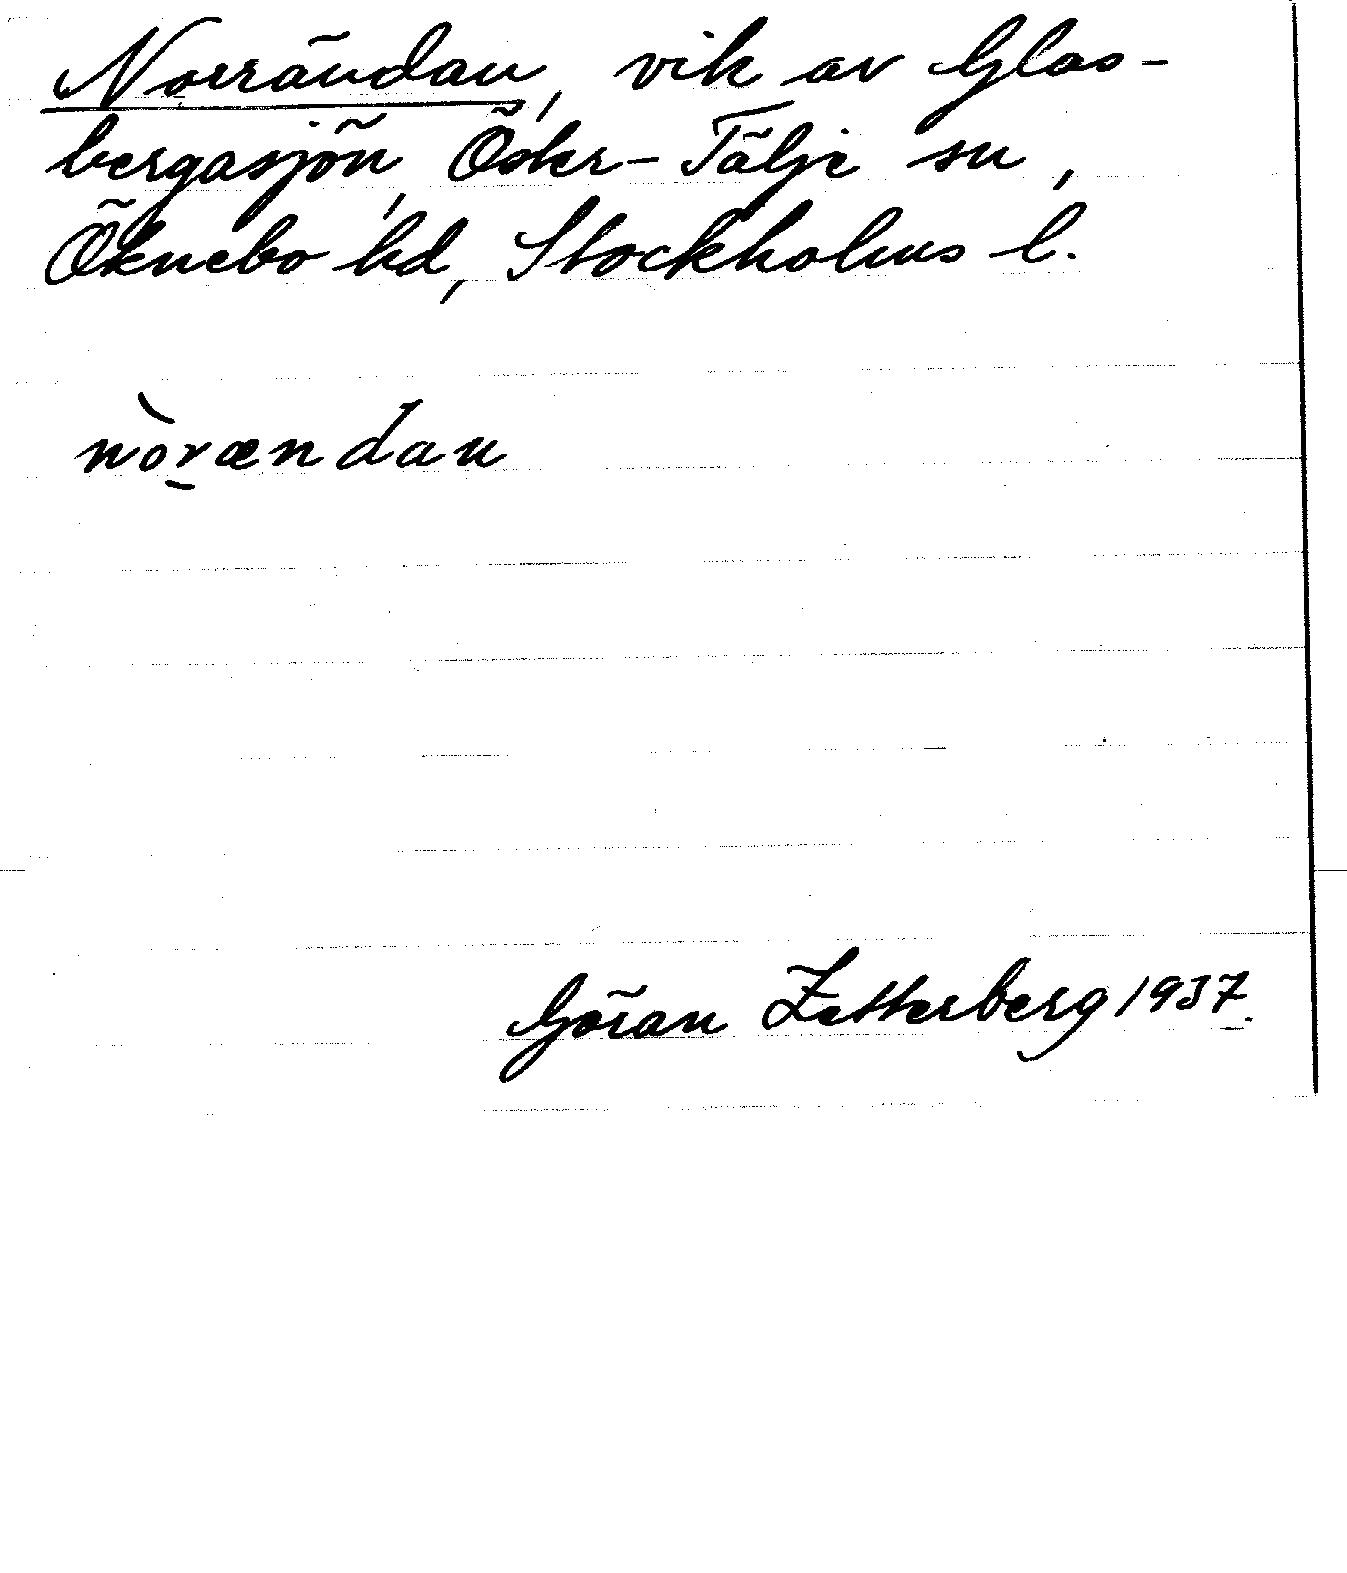 Norrändan, vik av Glas-
bergasjön, Öster-Tälje sn,
Öknebo hd, Stockholms l.
nòrændan
Göran Zetterberg 1937.